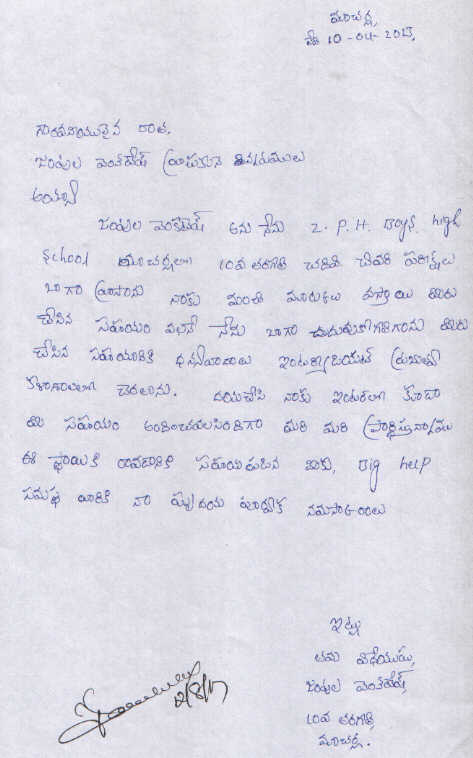 మాచర్ల,
తేది 10-04-2013,
గౌరవనీయులైన దాత,
జంపుల వెంకటేష్ వ్రాయునది
జంపుల వెంకటేష్ అను నేను Z.P.H. Boys, high
School మాచర్లలో 10వ తరగతి చదివి చివరి పరీక్షలు
బాగా వ్రాసాను నాకు మంచి మార్కులు వస్తాయి మీరు
చేసిన సహాయం వలనే నేను బాగా చదువుకోగలిగాను మీరు
చేసిన సహాయానికి ధన్యవాదాలు ఇంటర్మీడియట్ ప్రభుత్వ
కళాశాలలో చేరతాను. దయచేసి నాకు ఇంటరులో కూడా
మీ సహాయం అందించవలసిందిగా మరి మరి ప్రార్థిస్తున్నాము
ఈ స్థాయికి రావడానికి సహాయపడిన మీకు, Big help
సమస్థ వారికి నా హృదయ పూర్వక నమస్కారాలు
ఇట్లు
తమ విధేయుడు,
జంపుల వెంకటేష్,
10వ తరగతి,
మాచర్ల.